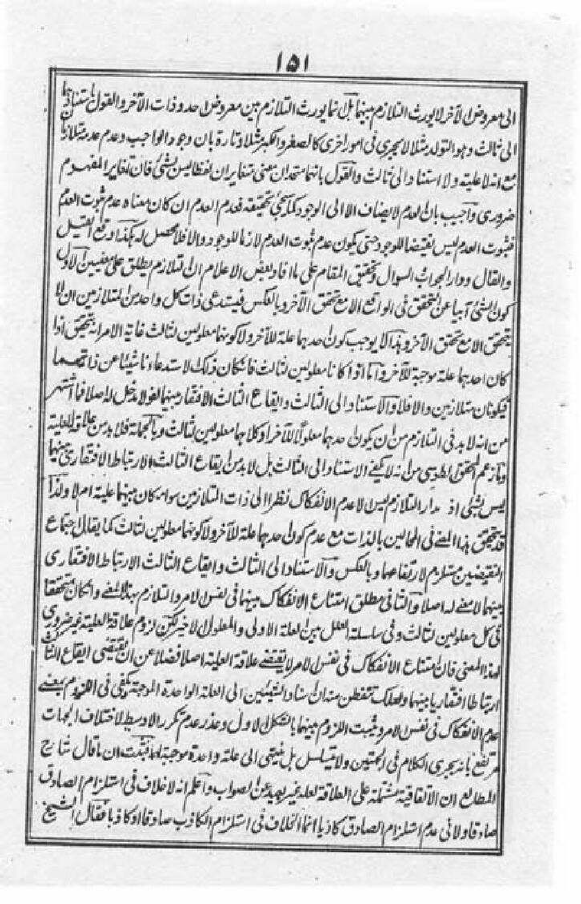 ١٥١
الى معروض الآخر لا يورث التلازم بينهما بل انما يورث التلازم بين معروض احد وذات الآخر والقول باستنادهما
الى ثالث وهو التولد مثلا لا يجرى فى امور اخرى كالصغر والكبر مثلا وتارة بان وجود الواجب وعدم عدمه متلازمان
مع انه لا علية ولا استناد الى ثالث والقول بانهما متحدان معنى متغايران لفظا ليس بشئ فان تغاير المفهوم
ضرورى واجيب بان العدم لا يضاف الا الى الوجود كما سيجئ تحقيقه فعدم العدم ان كان معناه عدم ثبوت العدم
فثبوت العدم ليس نقيضا للوجود حتى يكون عدم ثبوت العدم لازما للوجود والا فلا محصل له هكذا وقع القيل
والقال ودار الجواب السوال وتحقيق المقام على ما افاد بعض الاعلام ان التلازم يطلق على معنيين الاول
كون الشئ آبيا عن التحقق فى الواقع الا مع تحقق الآخر وبالعكس فيستدعى ذات كل واحد من المتلازمين ان لا
يتحقق الا مع تحقق الآخر وهذا لا يوجب كون احدهما علة للآخر ولا كونهما معلولين لثالث غاية الامر انه يتحقق اذا
كان احدهما علة موجبة للآخر واما اذا كانا معلولين لثالث فان كان ذلك الاستدعاء ناشيا عن ذاتهما
فيكونان متلازمين والا فلا والاستناد الى الثالث وايقاع الثالث الافتقار بينهما لغو لا مدخل له اصلا فما اشتهر
من انه لا بد فى التلازم من ان يكون احدهما معلولا للآخر او كلاهما معلولين لثالث وبالجملة فلا بد من علاقة العلية
وما زعم المحقق الطوسى من انه لا يكفى الاستناد الى الثالث بل لا بد من ايقاع الثالث الارتباط الافتقارى بينهما
ليس بشئ اذ مدار التلازم ليس الا عدم الانفكاك نظرا الى ذات المتلازمين سواء كان بينهما علية ام لا ولذا
قد يتحقق هذا المعنى فى المحالين بالذات مع عدم كون احدهما علة للآخر ولا كونهما معلولين لثالث كما يقال اجتماع
النقيضين مستلزم لارتفاعهما وبالعكس والاستناد الى الثالث وايقاع الثالث الارتباط الافتقارى
بينهما لا معنى له اصلا والثانى مطلق امتناع الانفكاك بينهما فى نفس الامر والتلازم بهذا المعنى وان كان متحققا
فى كل معلولين لثالث وفى سلسلة العلل بين العلة الاولى والمعلول الاخير لكن لزوم علاقة العلية غير ضرورى
لهذا المعنى فان امتناع الانفكاك فى نفس الامر لا يقتضى علاقة العلية اصلا فضلا عن ان يقتضى ايقاع الثالث
ارتباطا افتقاريا بينهما ولعلك تتفطن منه ان اسناد الشيئين الى العلة الواحدة الموجبة يكفى فى اللزوم بمعنى
عدم الانفكاك فى نفس الامر وثبت اللزوم بينهما بالشكل الاول وعذر عدم تكرر الاوسط لاختلاف الجهات
مرتفع بانه يجرى الكلام فى الجهتين ولا يتسلسل بل ينتهى الى علة واحدة موجبة لهما فثبت ان ما قال شارح
المطالع ان الاتفاقية مشتملة على العلاقة لعله غير بعيد عن الصواب واعلم انه لا خلاف فى استلزام الصادق
صادقا ولا فى عدم استلزام الصادق كاذبا انما الخلاف فى استلزام الكاذب صادقا او كاذبا فقال الشيخ